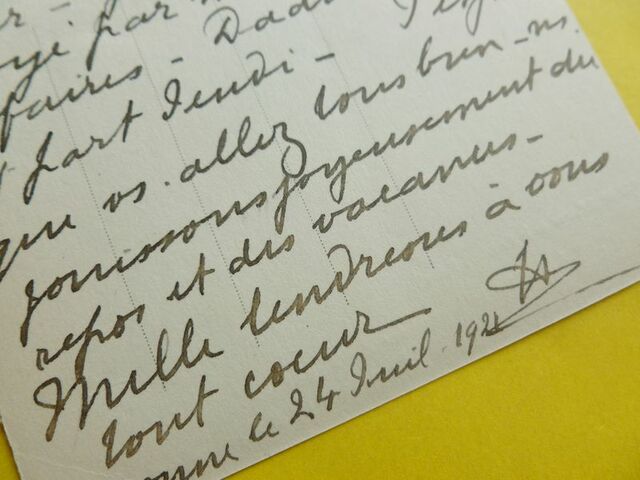 par
faires - Dads
part Jeudi -
que vs. allez tous bien - ns.
jouissons joyeusement du
repos et des vacances -
Mille tendresses à vous
tout coeur
le 24 Juil. 192